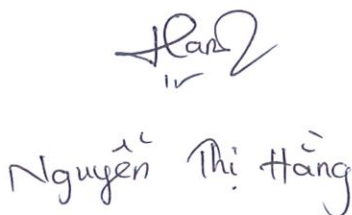 Hang
Nguyễn Thị Hằng